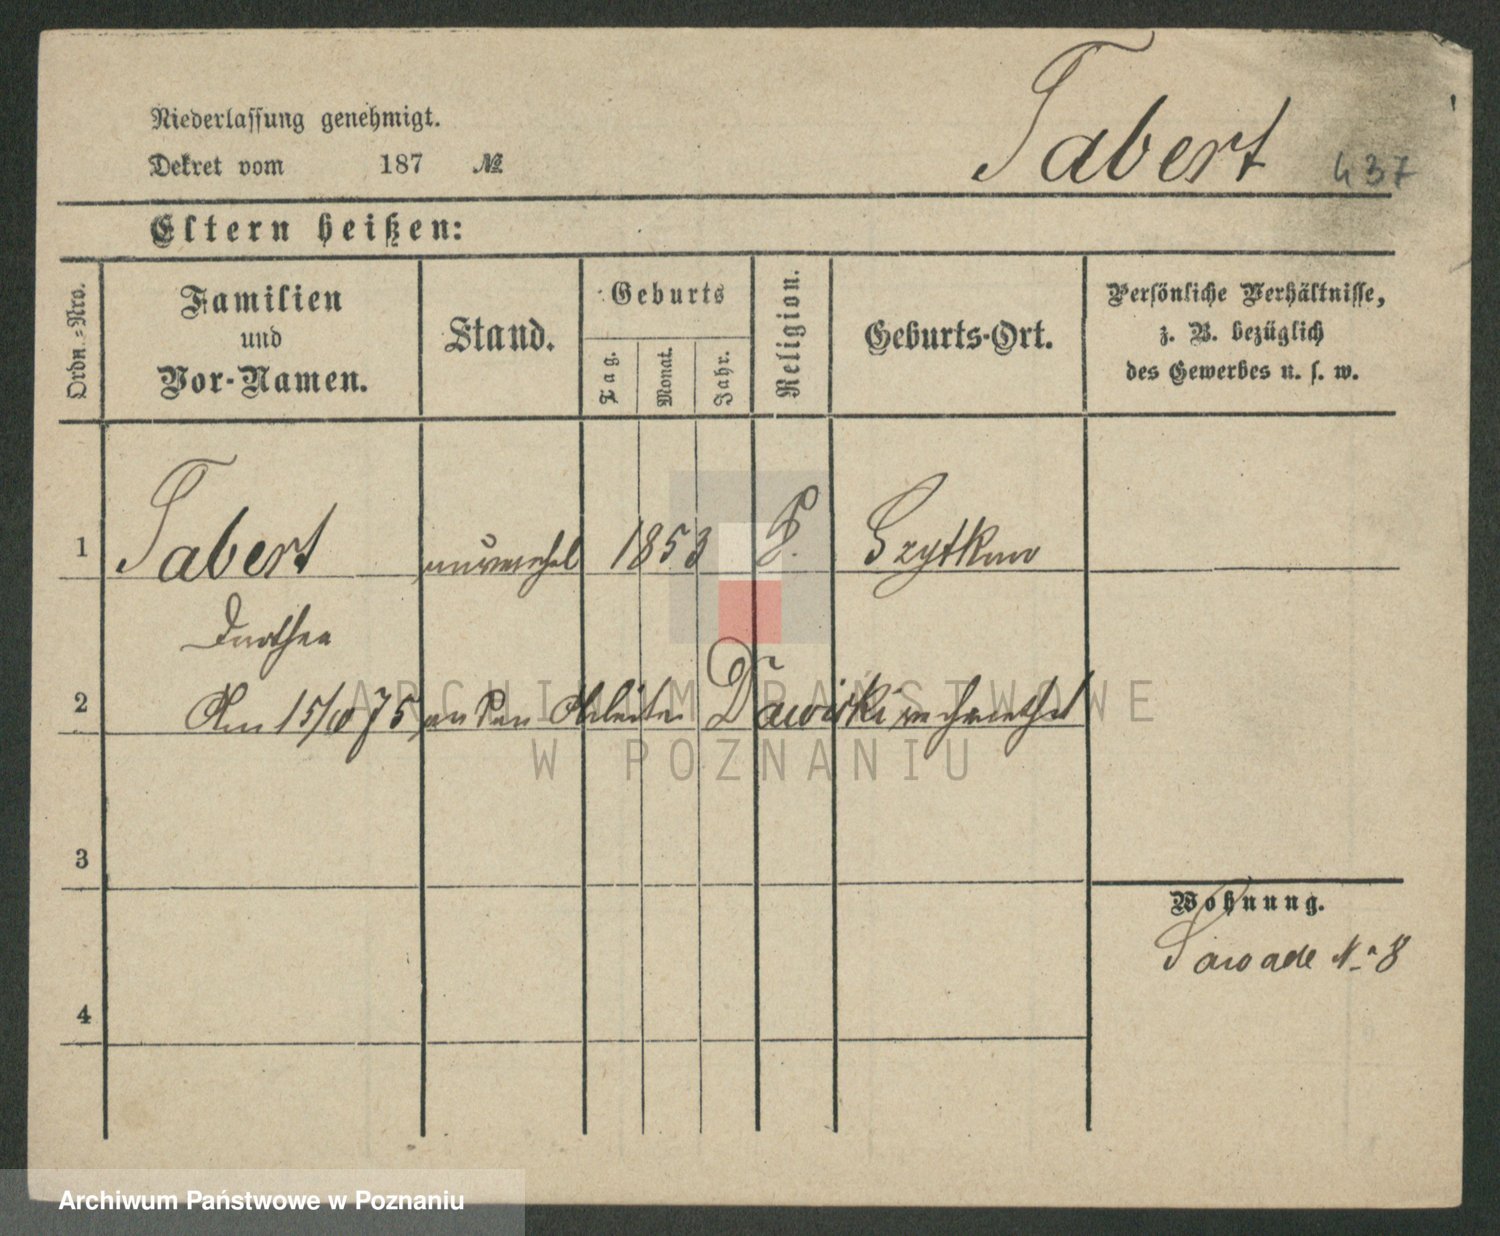 Tabert
437
Niederlassung genehmigt.
Dekret vom 187 №
Eltern heißen:
Ordn.-Nro.
Familien
und
Vor-Namen.
Stand.
Geburts
Tag.
Monat.
Jahr.
Religion.
Geburts-Ort.
Persönliche Verhältnisse,
z. B. bezüglich
des Gewerbes u. s. w.
1 Tabert unverehel 1853
Dorothea
2 Am 15/10 75 an den Arbeiter Dawiski verheirathet
3
Wohnung.
Sawade No 8
4
ARCHIWUM PAŃSTWOWE
W POZNANIU
Archiwum Państwowe w Poznaniu